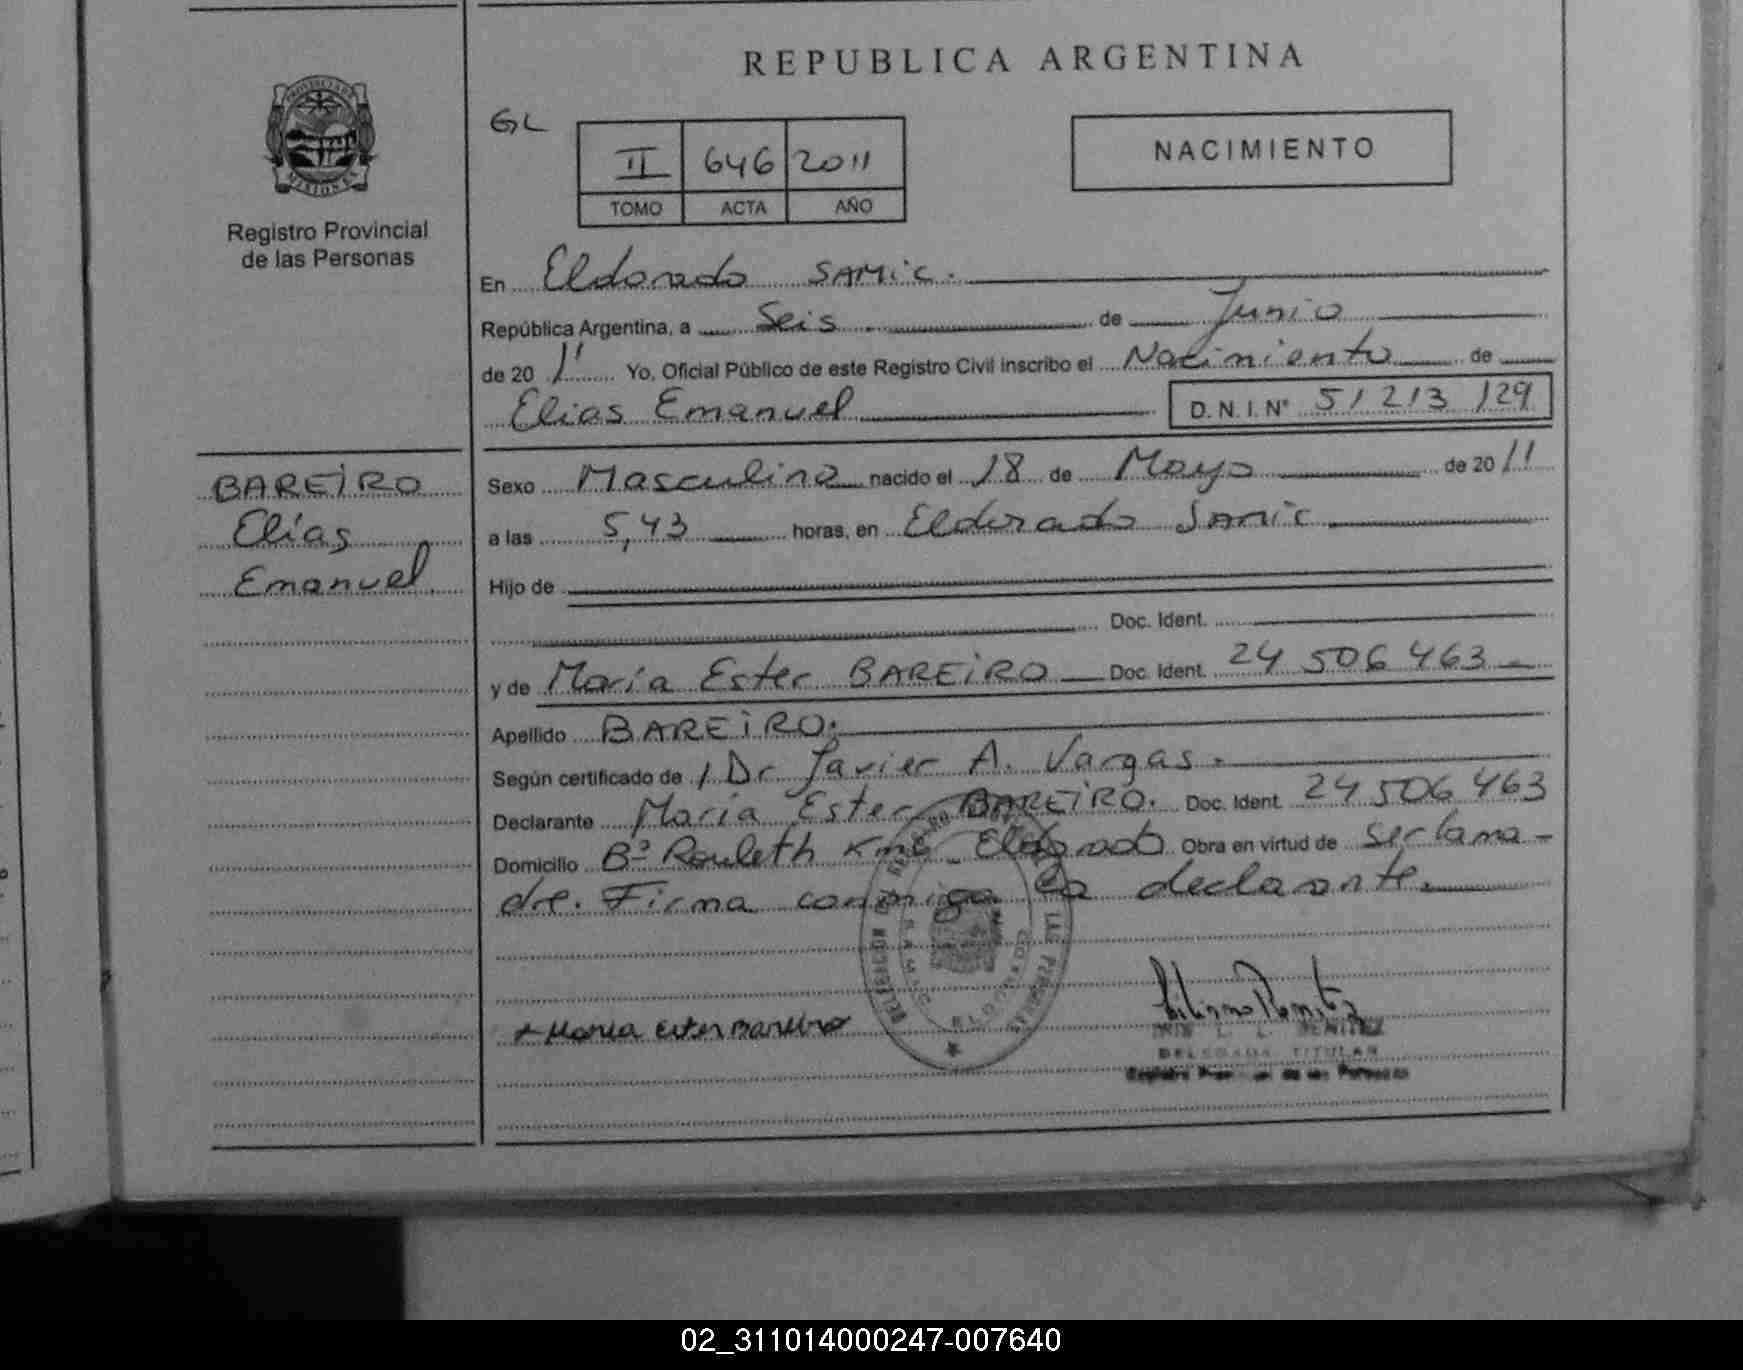 REPUBLICA ARGENTINA
PROVINCIA DE
MISIONES
Registro Provincial
de las Personas
GL
II 646 2011
TOMO ACTA AÑO
NACIMIENTO
En Eldorado SAMIC.
República Argentina, a Seis de Junio
de 2011 Yo, Oficial Público de este Registro Civil inscribo el Nacimiento de
Elias Emanuel D.N.I. N° 51 213 129
BAREIRO
Elías
Emanuel
Sexo Masculino nacido el 18 de Mayo de 2011
a las 5,43 horas, en Eldorado Samic
Hijo de
Doc. Ident.
y de María Ester BAREIRO Doc. Ident. 24 506 463
Apellido BAREIRO.
Según certificado de / Dr Javier A. Vargas.
Declarante María Ester BAREIRO. Doc. Ident. 24 506 463
Domicilio Bº Rouleth Eldorado Obra en virtud de ser la ma-
dre. Firma conmigo la declarante.
LAS PERSONAS
SAMIC
ELDORADO
Maria Ester Bareiro
BENITEZ
DELEGADA TITULAR
02_311014000247-007640